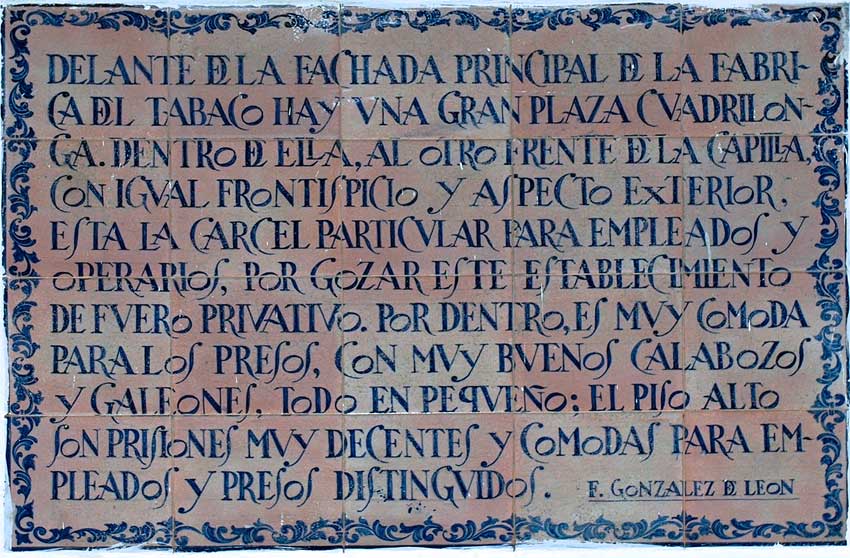 DELANTE DE LA FACHADA PRINCIPAL DE LA FABRI-
CA DEL TABACO HAY VNA GRAN PLAZA CVADRILON-
GA. DENTRO DE ELLA, AL OTRO FRENTE DE LA CAPILLA,
CON IGVAL FRONTISPICIO Y ASPECTO EXTERIOR,
ESTA LA CARCEL PARTICVLAR PARA EMPLEADOS Y
OPERARIOS, POR GOZAR ESTE ESTABLECIMIENTO
DE FVERO PRIVATIVO. POR DENTRO, ES MVY COMODA
PARA LOS PRESOS, CON MVY BVENOS CALABOZOS
Y GALERONES, TODO EN PEQVEÑO; EL PISO ALTO
SON PRISIONES MVY DECENTES Y COMODAS PARA EM-
PLEADOS Y PRESOS DISTINGVIDOS. F. GONZALEZ DE LEON